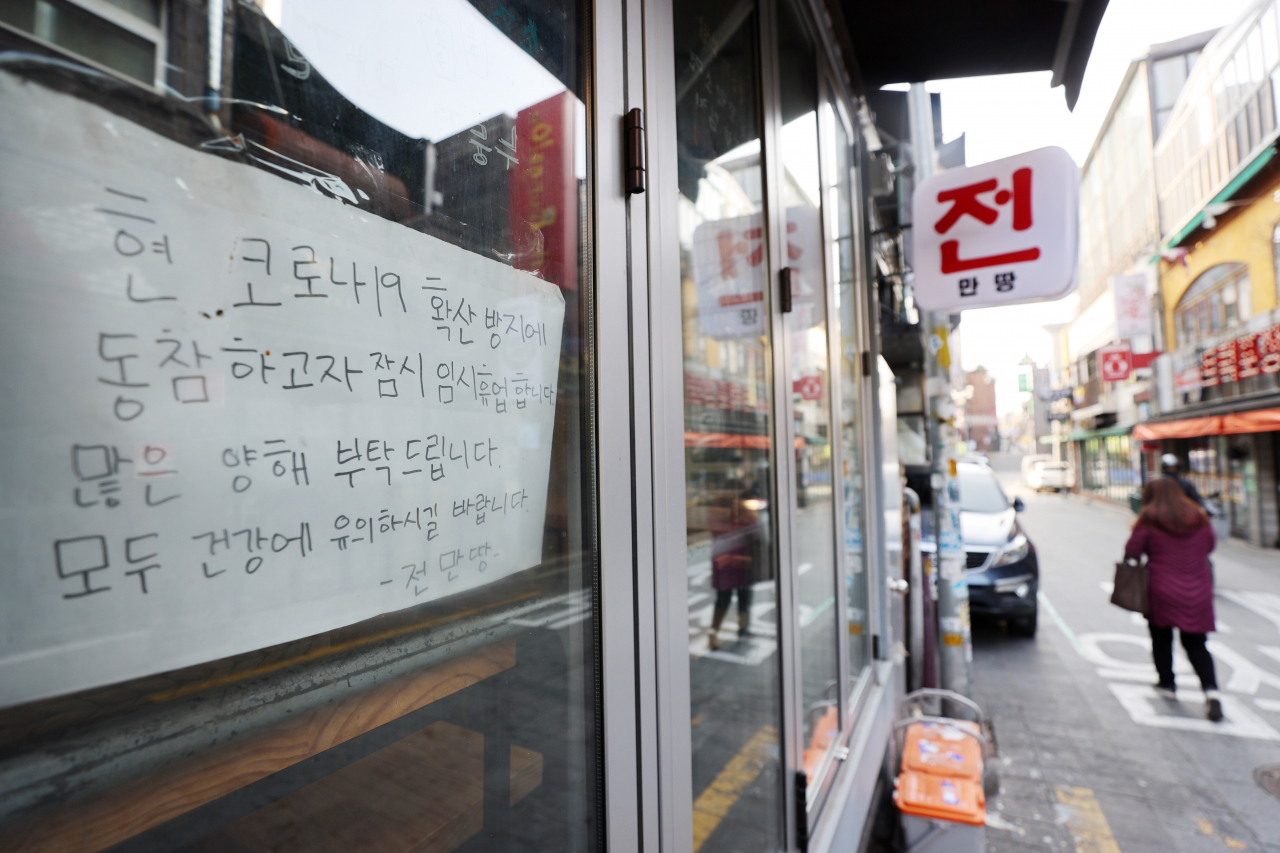 현 코로나19 확산 방지에
동참 하고자 잠시 임시휴업 합니다
많은 양해 부탁드립니다.
모두 건강에 유의하시길 바랍니다.
-전 만땅-
전
만땅